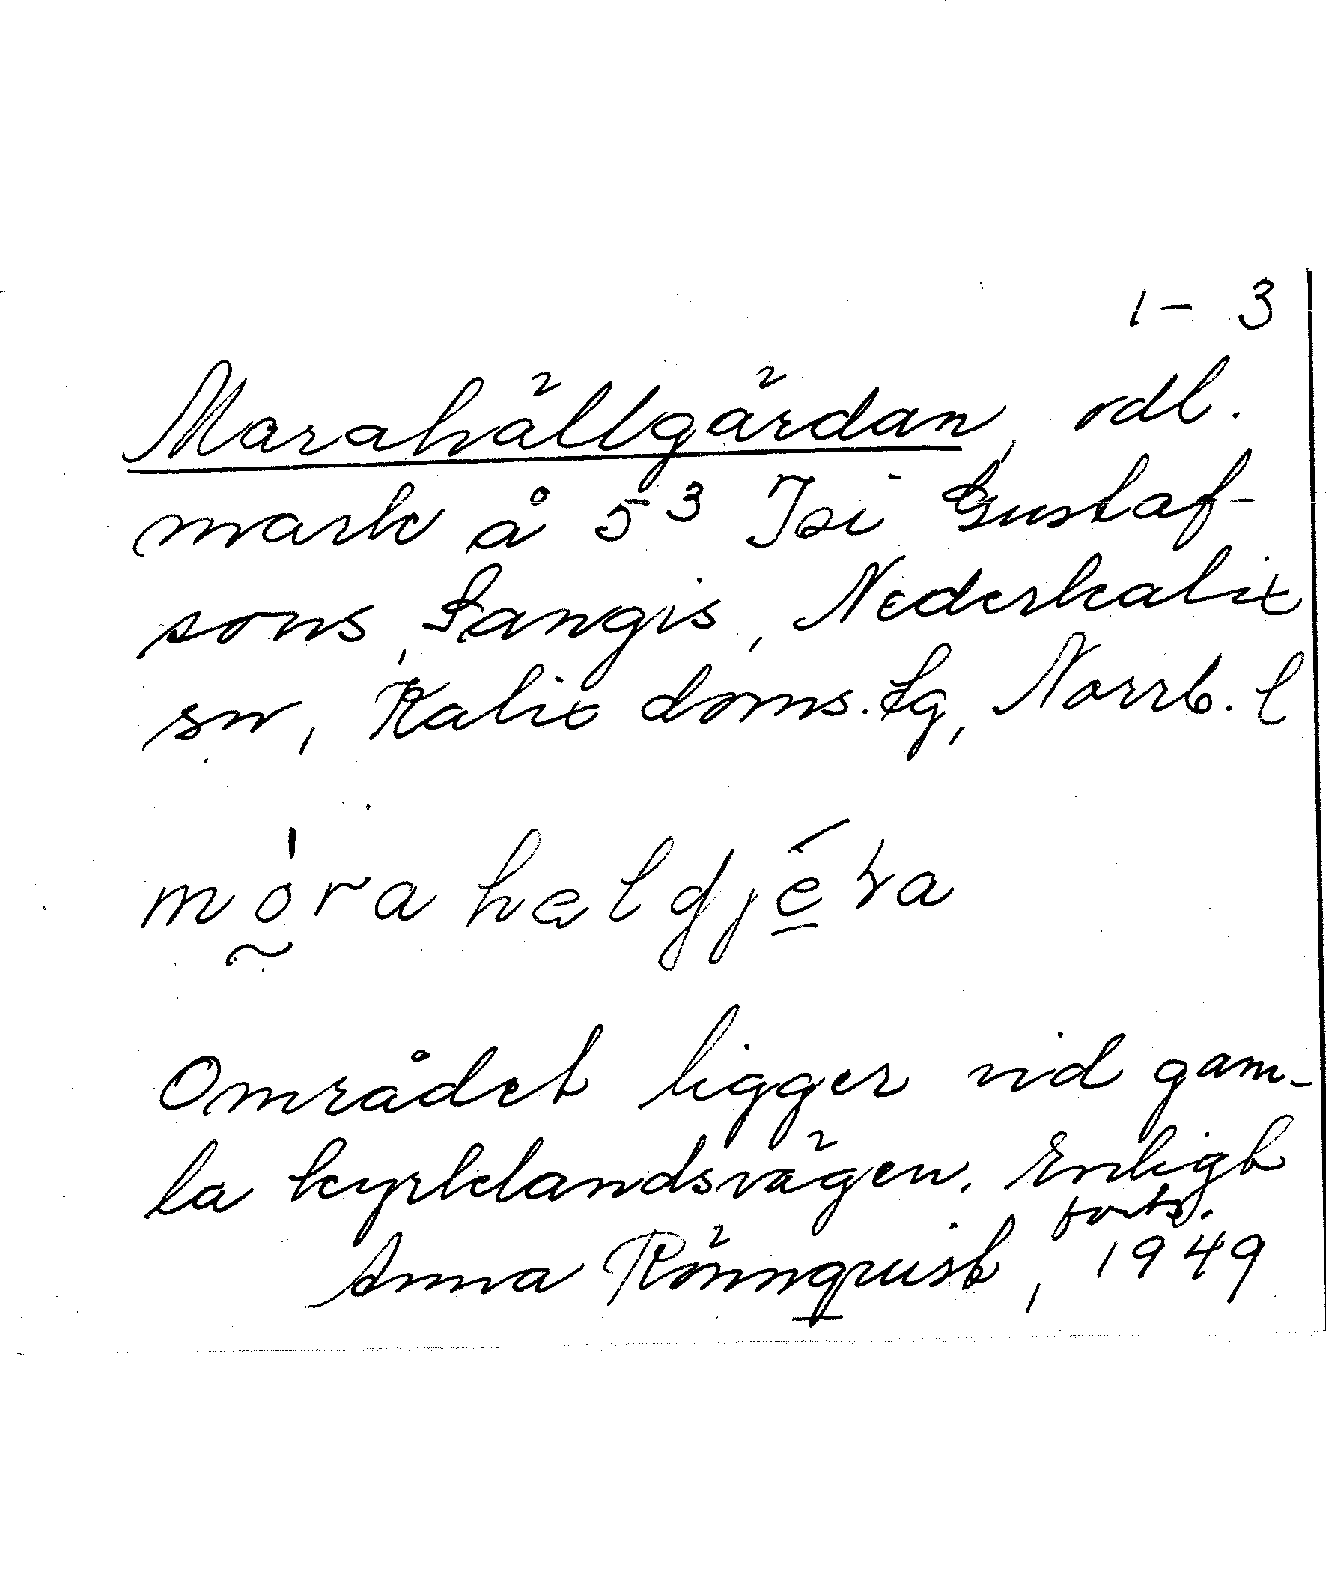 1 - 3
Marahällgärdan, odl.
mark å 5³ Isi Gustaf-
sons, Sangis, Nederkalix
sn, Kalix doms. lg, Norrb. l
Området ligger vid gam-
la kyrklandsvägen. Enligt
forts.
Anna Rönnquist, 1949